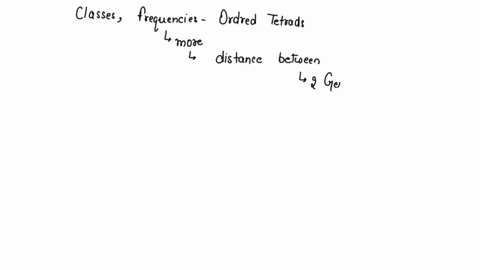 Classes, frequencies - Ordred Tetrads
↳ more
↳ distance between
↳ 2 Ge